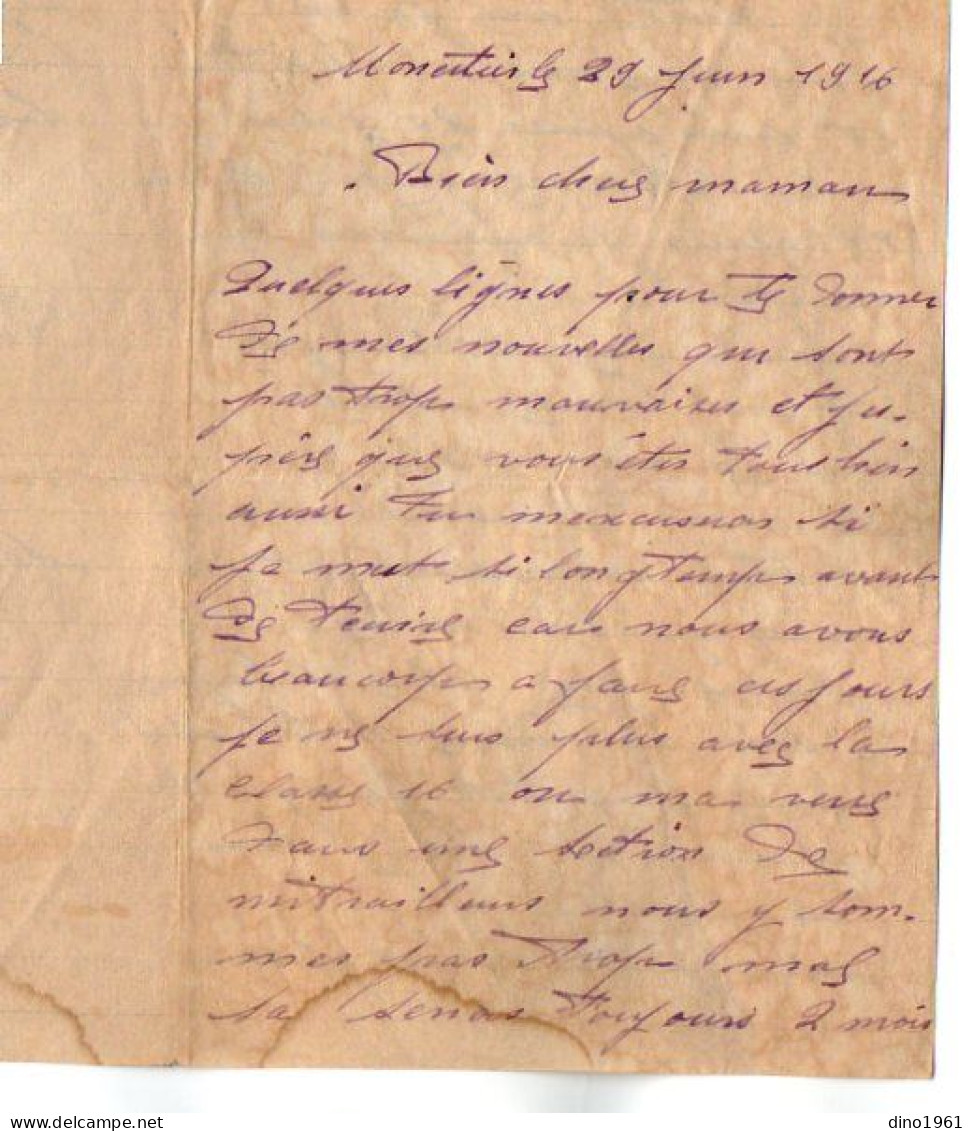 Monetier le 29 juin 1916
Bien cher maman
Quelques lignes pour te donner
de mes nouvelles qui sont
pas trop mauvaises et j'es-
père que vous êtes tous bien
aussi tu mexcuseras si
je met si longtemps avant
de t'ecrire car nous avons
beaucoup a faire ces jours
je ne suis plus avec la
classe 16 on ma versé
dans une section de
mitrailleurs nous y som-
mes pas trop mal
sa seras toujours 2 mois
dino1961